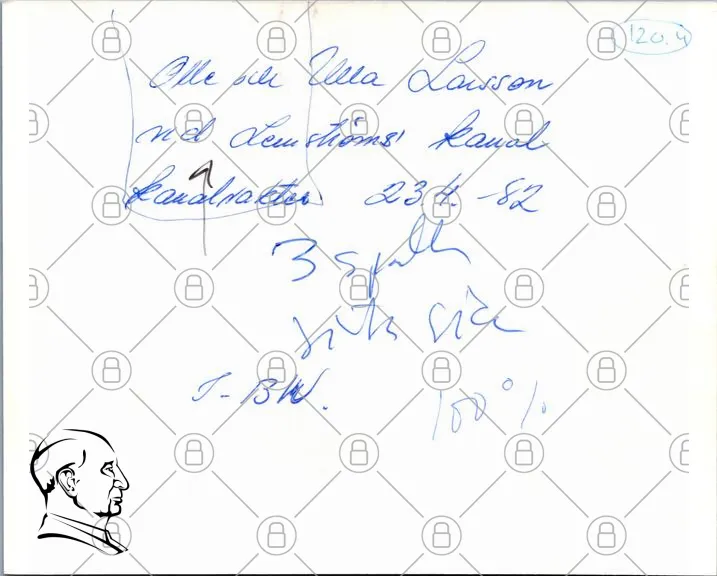 120.4
Olle och Ulla Larsson
vid Lemströms kanal
kanalvakten 23 4. -82
3 spalt
sista sida
J-BW.
100%